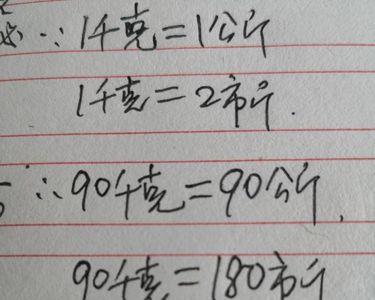 ∵ 1千克=1公斤
1千克=2市斤.
∴ 90千克=90公斤,
90千克=180市斤